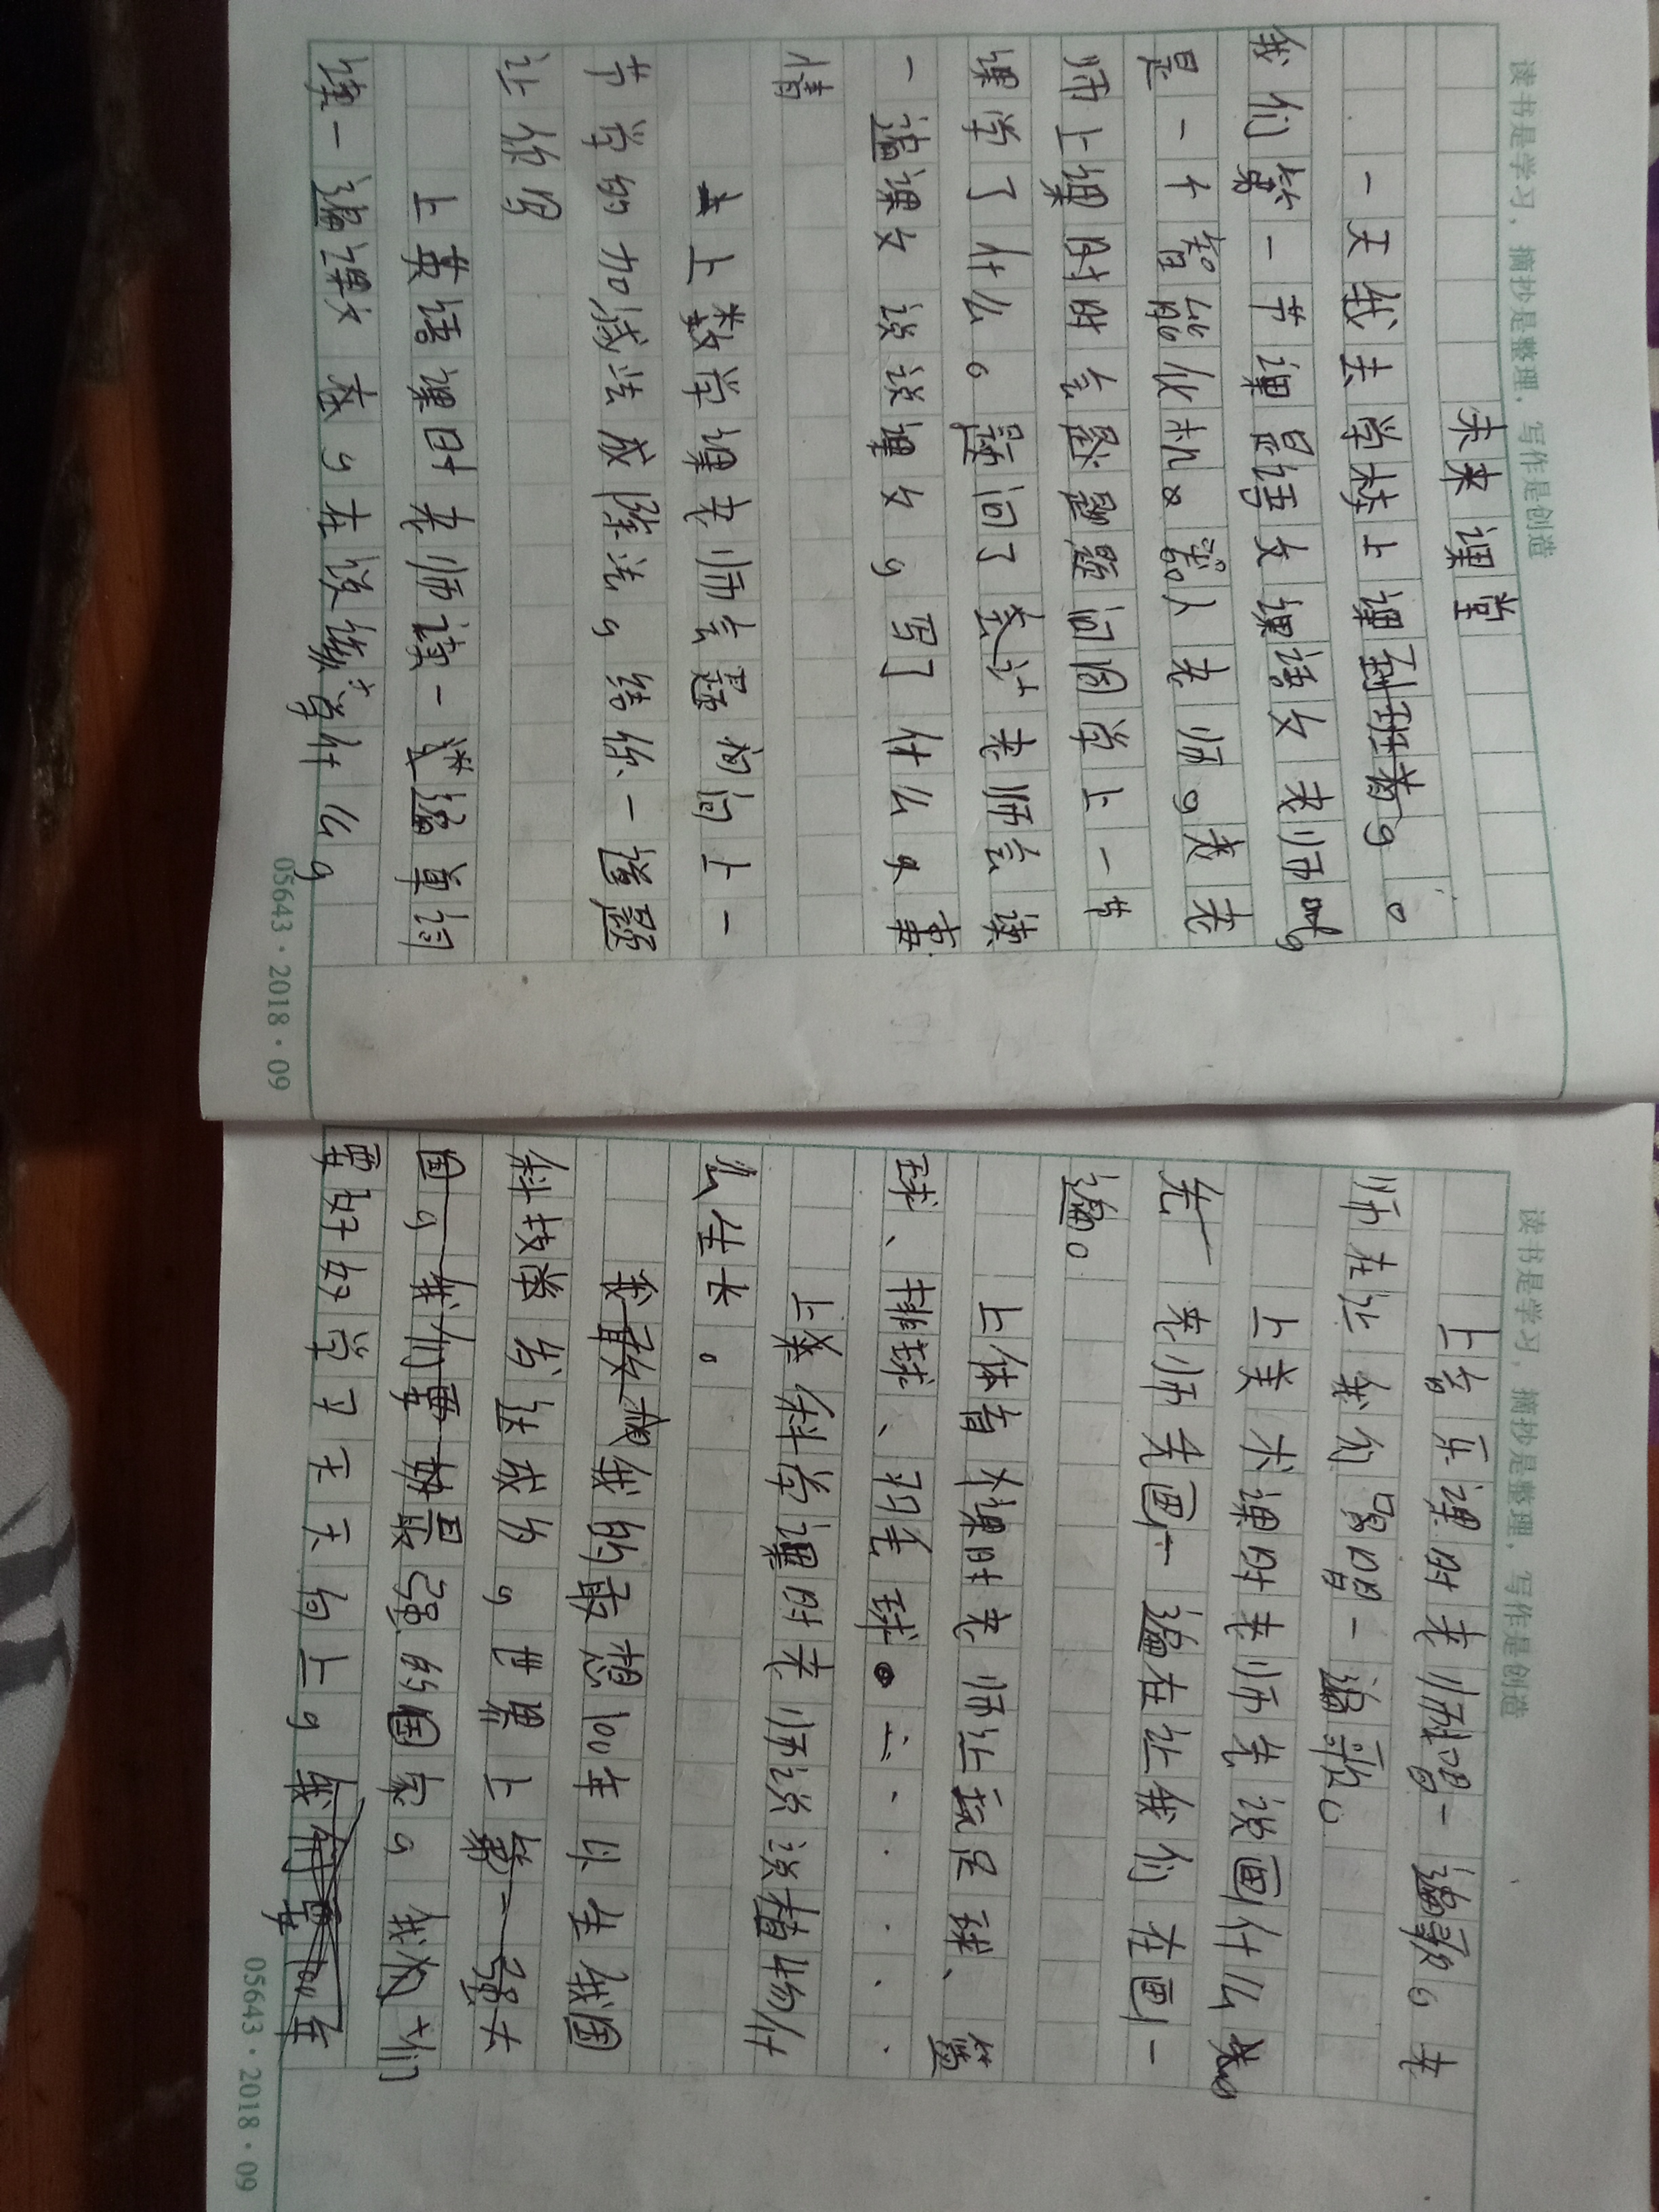 读书是学习，摘抄是整理，写作是创造
未来课堂
一天我去学校上课到班着，。
我们第一节课是语文课语文老师
是一个智能化机器人老师，老老
师上课时时会题题问同学上一节
课学了什么。题问了会让老师会读
一遍课文说说课文，写了什么事
情
上数学课老师会题问问上一
节学的加减法成除法，结你一道题
让你写
上英语课时老师读一遍单词
读一遍课文在，在说读单什么，
05643·2018·09
读书是学习，摘抄是整理，写作是创造
上音乐课时老师唱一遍歌。老
师在让我们唱一遍歌。
上美术课时老师先说画什么
先一老师先画一遍在让我们在画一
遍。
上体育课时老师让玩足球、篮
球、排球、羽毛球。
上科学课时老师说说植物什
么生长。
我的敢想100年以生我国
科技学为达成为，世界上第一强大
国，我们要最强的国家，我们
要好好学习天天向上，
05643·2018·09